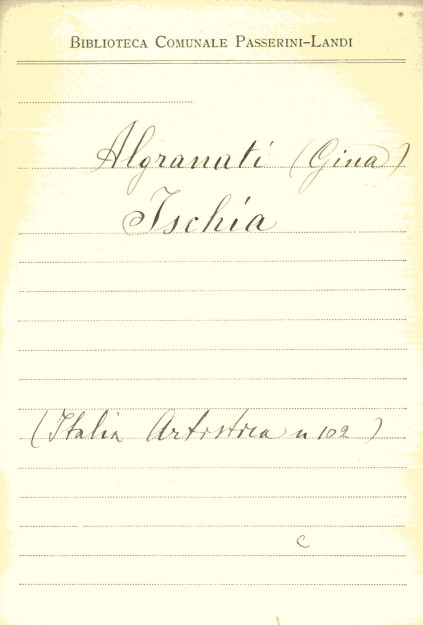 BIBLIOTECA COMUNALE PASSERINI-LANDI
Algranati (Gina)
Ischia
(Italia Artistica n 102)
c